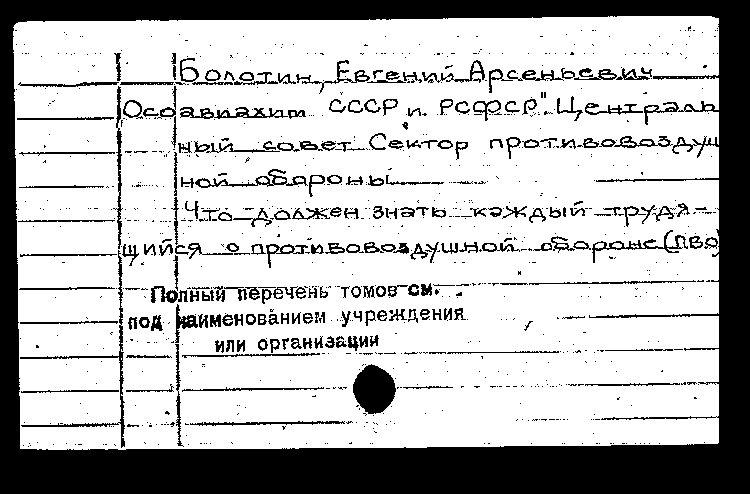 Болотин, Евгений Арсеньевич
Осоавиахим СССР и РСФСР". Централь
ный совет Сектор противовоздуш
ной обороны
Что должен знать каждый трудя-
щийся о противовоздушной обороне (ПВО)
Полный перечень томов см.
под наименованием учреждения
или организации